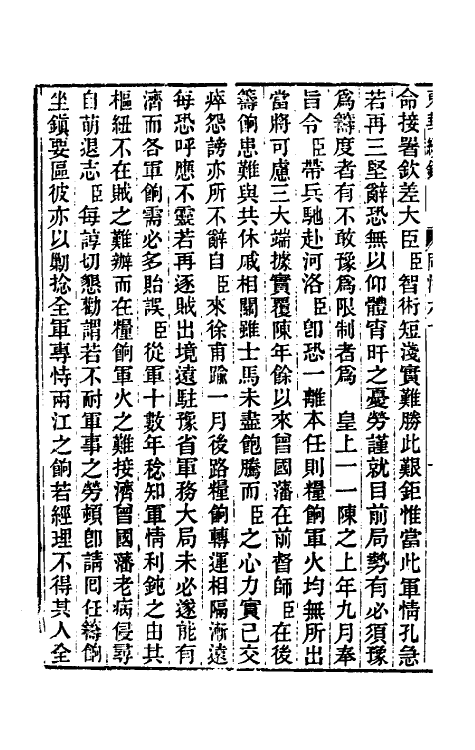 命接署欽差大臣臣智術短淺實難勝此艱鉅惟當此軍情孔急
若再三堅辭恐無以仰體宵旰之憂勞謹就目前局勢有必須豫
爲籌度者有不敢豫爲限制者爲　皇上一一陳之上年九月奉
旨令臣帶兵馳赴河洛臣卽恐一離本任則糧餉軍火均無所出
當將可慮三大端據實覆陳年餘以來曾國藩在前督師臣在後
籌餉患難與共休戚相關雖士馬未盡飽騰而臣之心力實已交
瘁怨謗亦所不辭自臣來徐甫踰一月後路糧餉轉運相隔漸遠
每恐呼應不靈若再逐賊出境遠駐豫省軍務大局未必遂能有
濟而各軍餉需必多貽誤臣從軍十數年稔知軍情利鈍之由其
樞紐不在賊之難辦而在糧餉軍火之難接濟曾國藩老病侵尋
自萌退志臣每諄切懇勸謂若不耐軍事之勞頓卽請囘任籌餉
坐鎭要區彼亦以勦捻全軍專恃兩江之餉若經理不得其人全